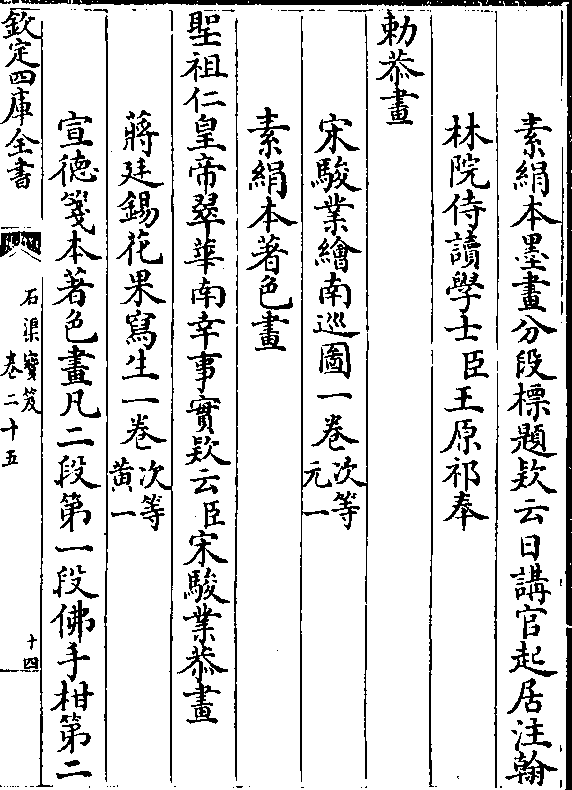 素絹本墨畫分段標題欵云日講官起居注翰
林院侍讀學士臣王原祁奉
勅恭畫
宋駿業繪南巡圖一卷次等元一
素絹本著色畫
聖祖仁皇帝翠華南幸事實欵云臣宋駿業恭畫
蔣廷錫花果寫生一卷次等黄一
宣德箋本著色畫凡二段第一段佛手柑第二
欽定四庫全書
石渠寶笈
卷二十五
十四